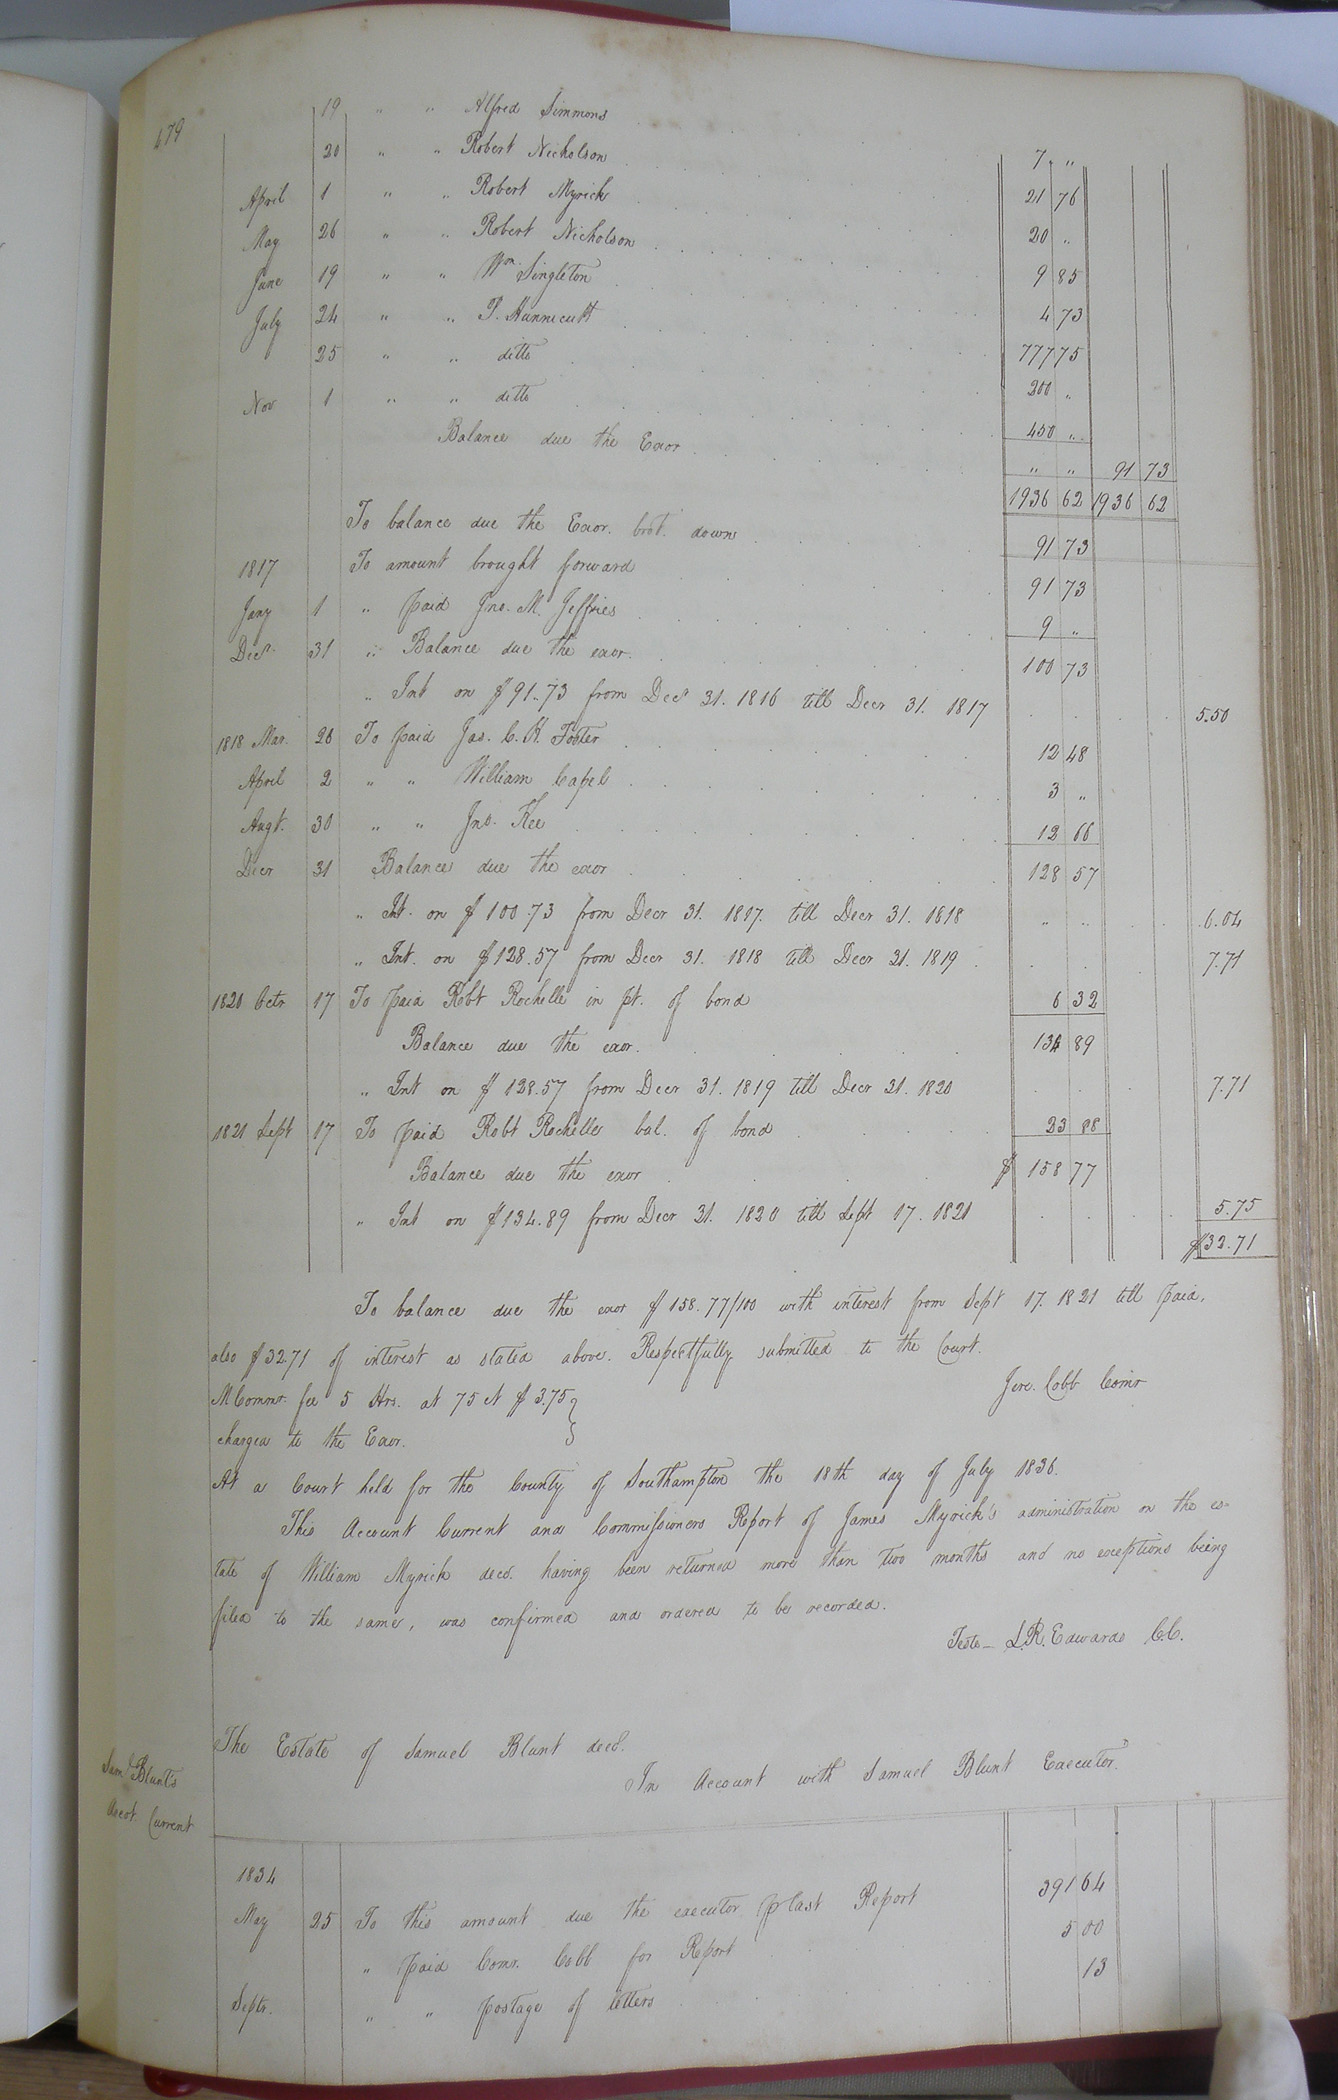 679
19 " " Alfred Simmons 7 "
20 " " Robert Nicholson 21 76
April 1 " " Robert Myrick 20 "
May 26 " " Robert Nicholson 9 85
June 19 " " Wm. Singleton 4 73
July 24 " " P. Hunnicutt 777 75
25 " " ditto 200 "
Nov 1 " " ditto 450 "
Balance due the Exor " " 91 73
1936 62 1936 62
To balance due the Exor. brot. down 91 73
1817 To amount brought forward 91 73
Jany 1 " paid Jno. M. Jeffries 9 "
Decr. 31 " Balance due the exor. 100 73
" Int on $91.73 from Decr 31. 1816 till Decr 31. 1817 5.50
1818 Mar. 26 To paid Jas. C. H. Foster 12 48
April 2 " " William Capel 3 "
Augt. 30 " " Jno. Kee 12 66
Decr 31 Balance due the exor 128 57
" Int. on $100.73 from Decr 31. 1817. till Decr 31. 1818 " " 6.04
" Int. on $128.57 from Decr 31. 1818 till Decr 31. 1819 7.71
1820 Octr 17 To paid Robt Rochelle in pt. of bond 6 32
Balance due the exor. 134 89
" Int on $128.57 from Decr 31. 1819 till Decr 31. 1820 7.71
1821 Sept 17 To paid Robt Rochelle bal. of bond 23 88
Balance due the exor $ 158 77
" Int on $134.89 from Decr 31. 1820 till Sept 17. 1821 5.75
$32.71
To balance due the exor $158.77/100 with interest from Sept 17. 1821 till paid,
also $32.71 of interest as stated above. Respectfully submitted to the Court.
M Commr. fee 5 Hrs. at 75 ct $3.75 }
Jere. Cobb Comr
charged to the Exor.
At a Court held for the County of Southampton the 18th day of July 1836.
This Account Current and Commissioners Report of James Myrick's administration on the es-
tate of William Myrick decd. having been returned more than two months and no exceptions being
filed to the same, was confirmed and ordered to be recorded.
Teste - L.R. Edwards C.C.
The Estate of Samuel Blunt decd.
In Account with Samuel Blunt Executor.
Saml Blunt's
Accot Current
1834
May 25 To this amount due the executor p last Report 391 64
" paid Comr. Cobb for Report 5 00
Septr. " " postage of letters 13